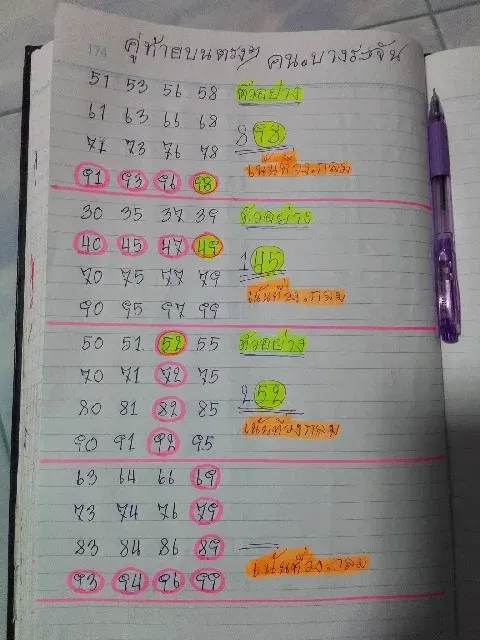 174 คู่ท้ายบนตรงๆ คน.บางระจัน
51 53 56 58 ตัวอย่าง
61 63 66 68
71 73 76 78 898
91 93 96 98 เน้นที่วง.กลม
30 35 37 39 ตัวอย่าง
40 45 47 49
70 75 77 79 145
90 95 97 99 เน้นที่วง.กลม
50 51 52 55 ตัวอย่าง
70 71 72 75
80 81 82 85 252
90 91 92 95 เน้นที่วงกลม
63 64 66 69
73 74 76 79
83 84 86 89
93 94 96 99 เน้นที่วง.กลม